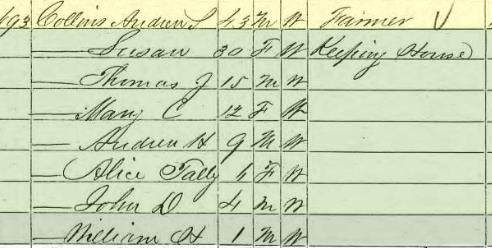 193 Collins Andrew S 43 M W Farmer V
— Susan 30 F W Keeping House
— Thomas J 15 M W
— Mary C 12 F W
— Andrew H 9 M W
— Alice Tally 6 F W
— John D 4 M W
— William H 1 M W